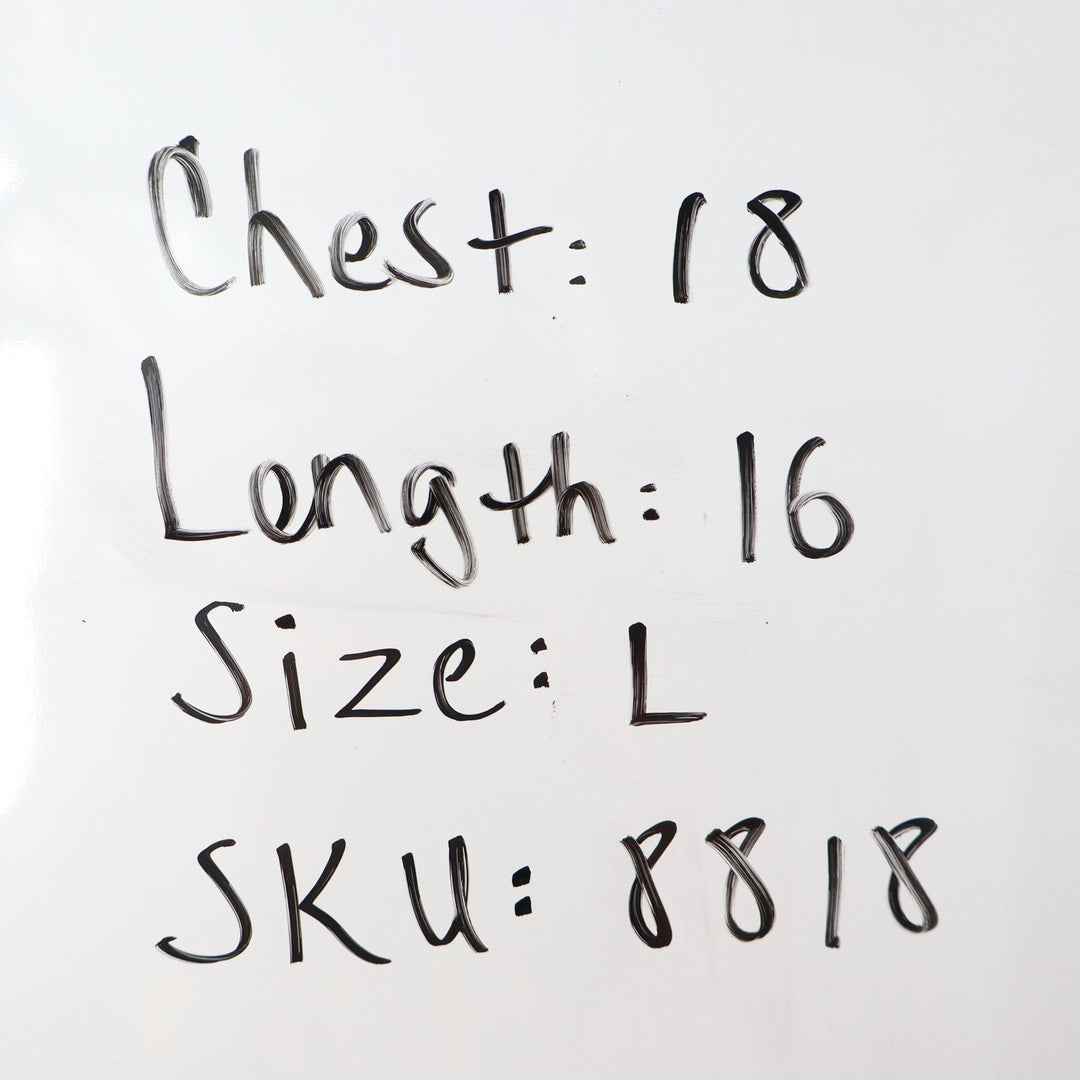 Chest: 18
Length: 16
Size: L
SKU: 8818